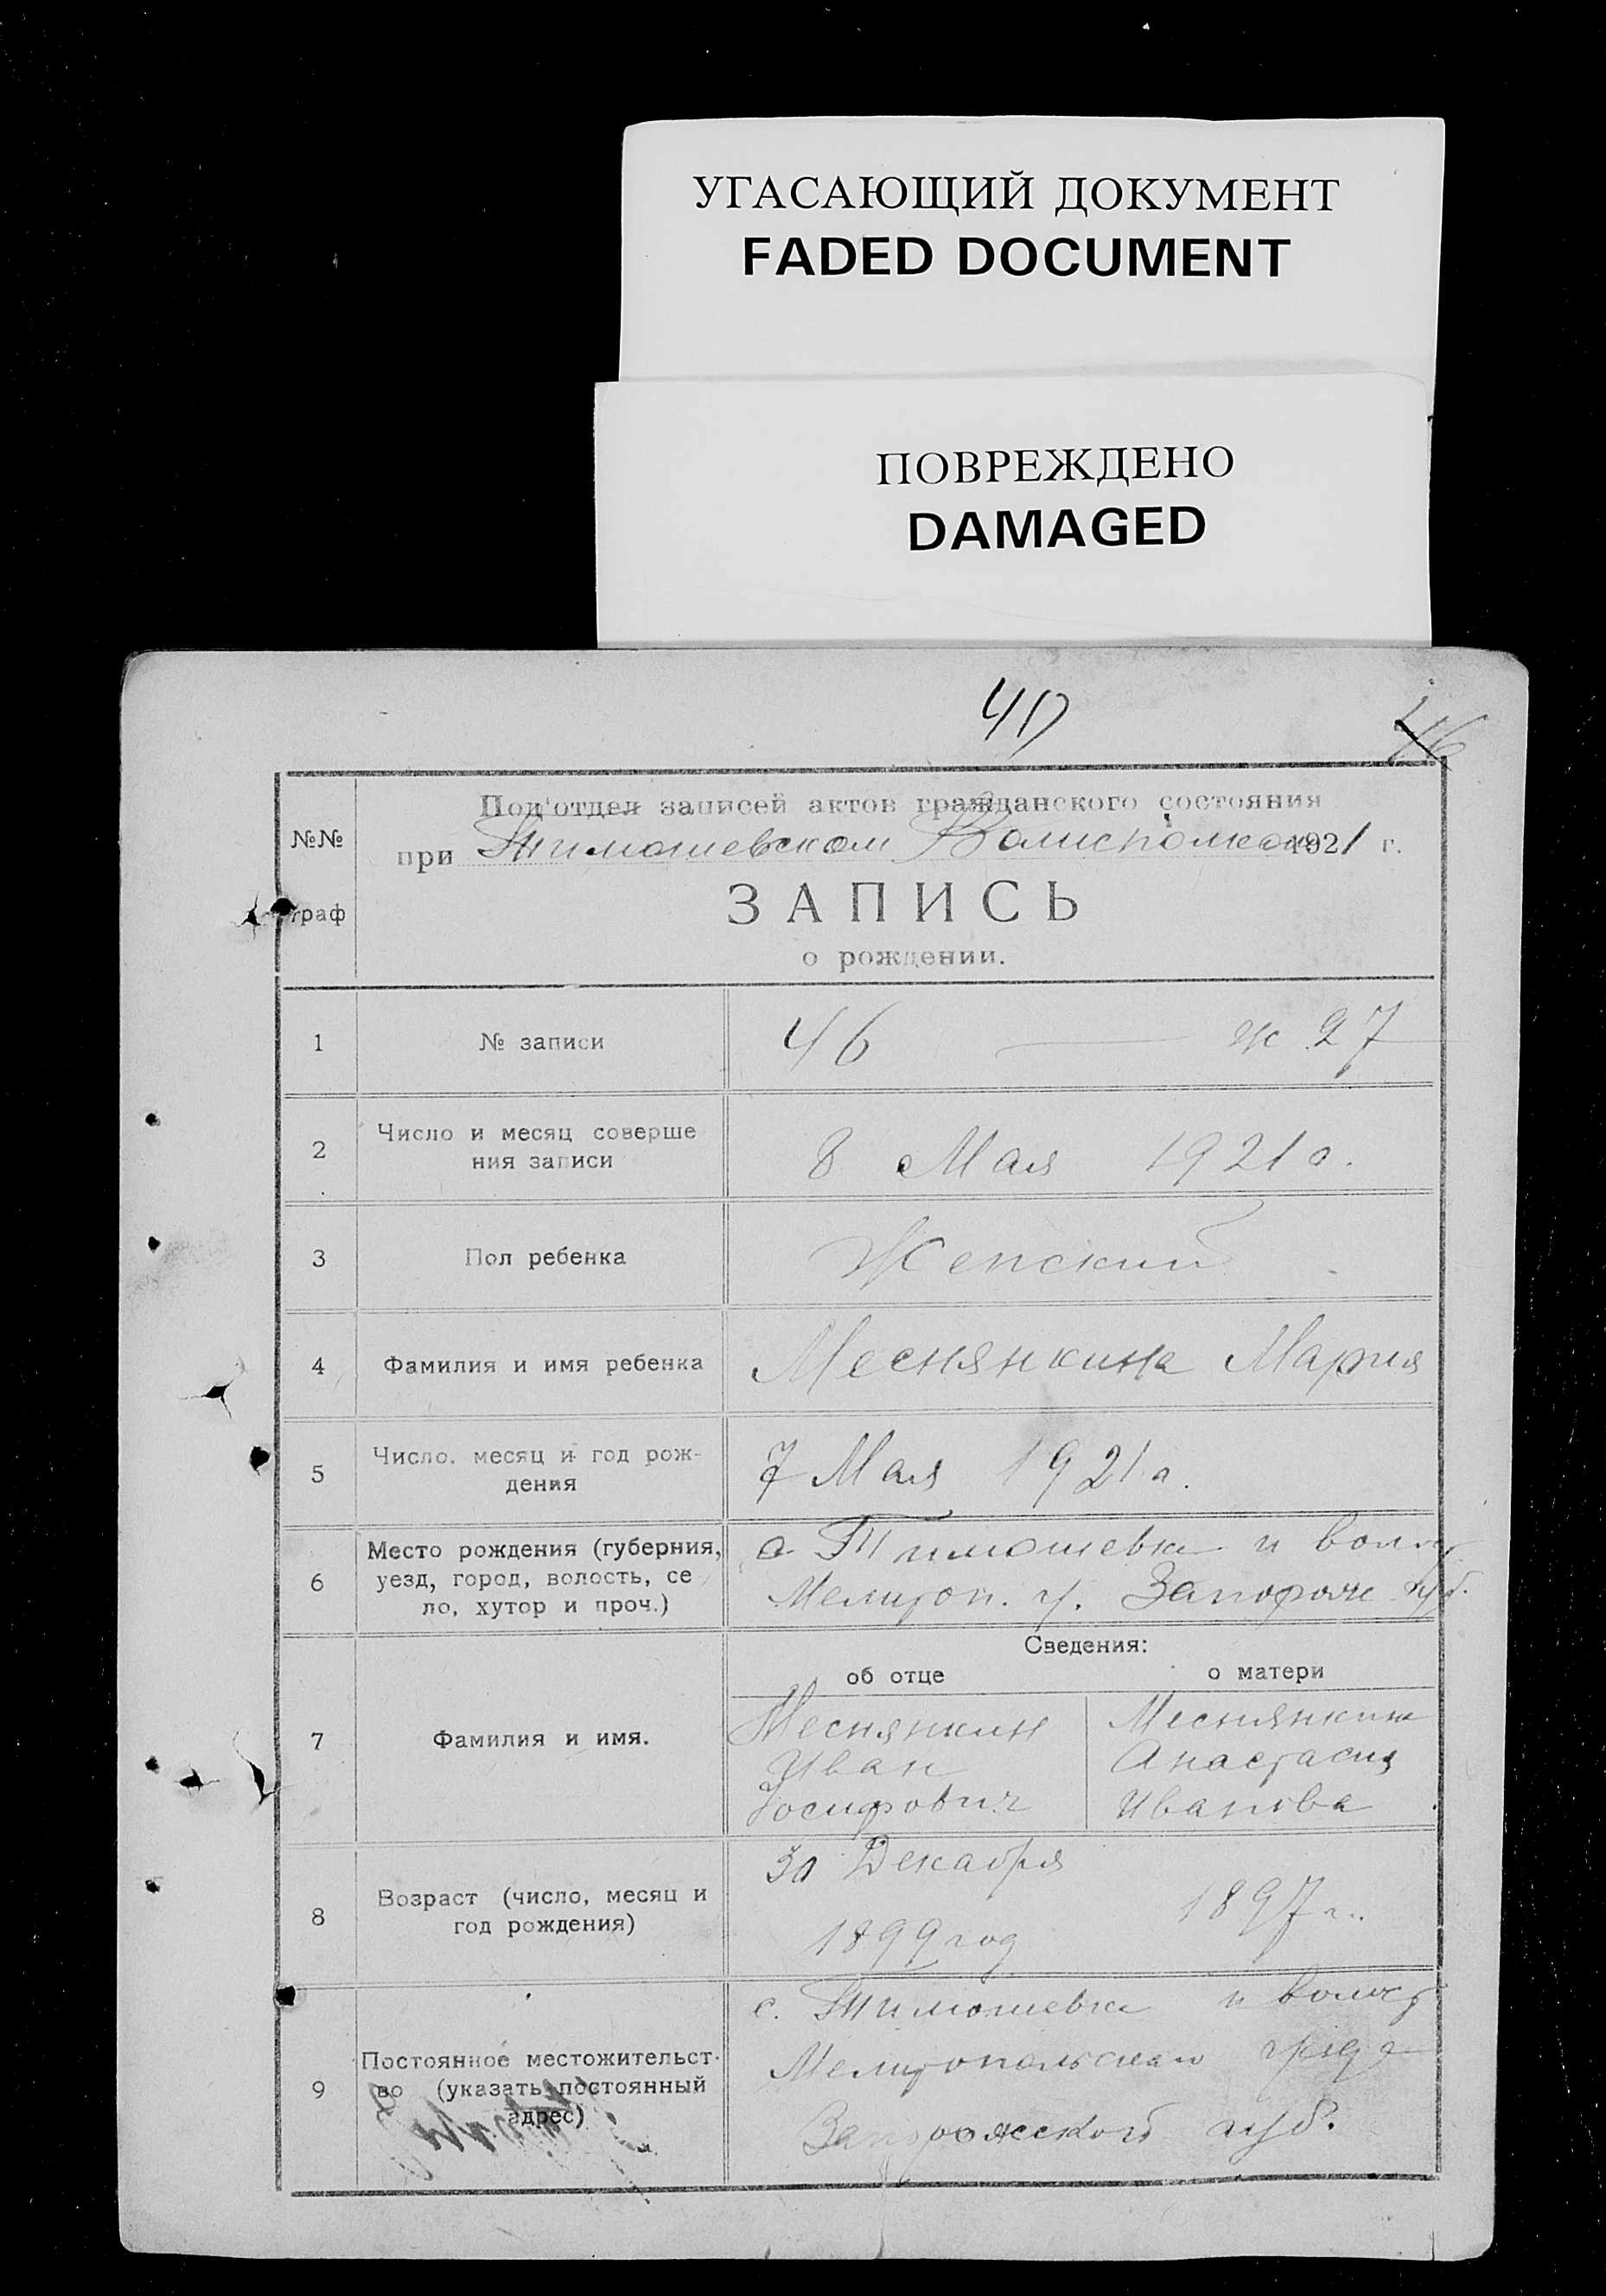 УГАСАЮЩИЙ ДОКУМЕНТ
FADED DOCUMENT
ПОВРЕЖДЕНО
DAMAGED
46
№№
граф
Под'отдел записей актов гражданского состояния
при Тимошевском Волисполкоме 1921 г.
ЗАПИСЬ
о рождении.
1 № записи 46 — ж 27
2 Число и месяц соверше
ния записи 8 Мая 1921 г.
3 Пол ребенка Женский
4 Фамилия и имя ребенка Меснянкина Мария
5 Число, месяц и год рож-
дения 7 Мая 1921 г.
6 Место рождения (губерния, с. Тимошевка и волост
уезд, город, волость, се
ло, хутор и проч.) Мелитоп. у. Запорож губ.
Сведения:
об отце о матери
7 Фамилия и имя.
Меснянкин Меснянкина
Иван Анастасия
Иосифович Иванова
30 Декабря
8 Возраст (число, месяц и 1897 г.
год рождения) 1899 год
с. Тимошевка и волост
9 Постоянное местожительст-
во (указать постоянный
адрес)
Мелитопольского уезда
Запорожской губ.